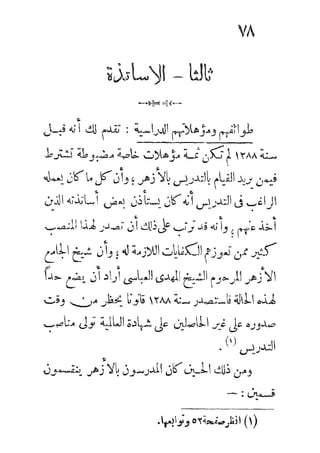 ٧٨
ثالثا – الاساتذة
طوائفهم ومؤهلاتهم الدراسية : تقدم لك أنه قبل
سنة ١٢٨٨ لم تكن ثمة مؤهلات خاصة مضبوطة تشترط
فيمن يريد القيام بالتدريس بالأزهر ؛ وأن كل ما كان يعمله
الراغب فى التدريس أنه كان يستأذن بعض أساتذته الذين
أخذ عنهم ؛ وأنه قد ترتب على ذلك أن تصدر لهذا المنصب
كثير ممن تعوزهم الكفايات اللازمة له ؛ وأن شيخ الجامع
الأزهر المرحوم الشيخ المهدى العباسى أراد أن يضع حداً
لهذه الحالة فاستصدر سنة ١٢٨٨ قانونا يحظر من وقت
صدوره على غير الحاصلين على شهادة العالمية تولى مناصب
التدريس (١) .
ومن ذلك الحين كان المدرسون بالأزهر ينقسمون
قسمين : —
(١) انظر صفحة ٥٢ وتوابعها.